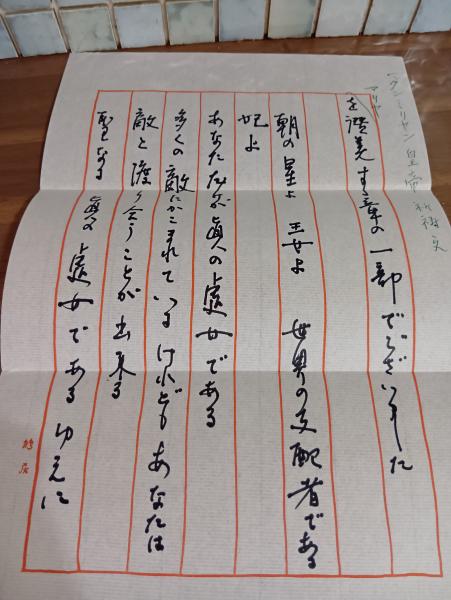 マクシミリヤン皇帝 祈祷文
マリヤ
を讃美する章の一部でございました
朝の星よ 王女よ 世界の支配者である
妃よ
あなた 眞の處女である
多くの敵にかこまれている けれども あなたは
敵と渡り合うことが出来る
聖なる 眞の處女である ゆえに
鳩居